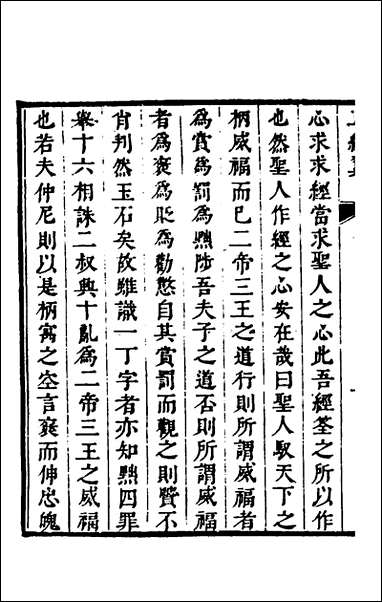 心求求經當求聖人之心此吾經筌之所以作
也然聖人作經之心安在哉曰聖人馭天下之
柄威福而已二帝三王之道行則所謂威福者
為賞為罰為黜陟吾夫子之道否則所謂威福
者為褒為貶為勸懲自其賞罰而觀之則賢不
肖判然玉石矣故雖識一丁字者亦知黜四罪
舉十六相誅二叔興十亂為二帝三王之威福
也若夫仲尼則以是柄寓之空言褒而伸忠魄